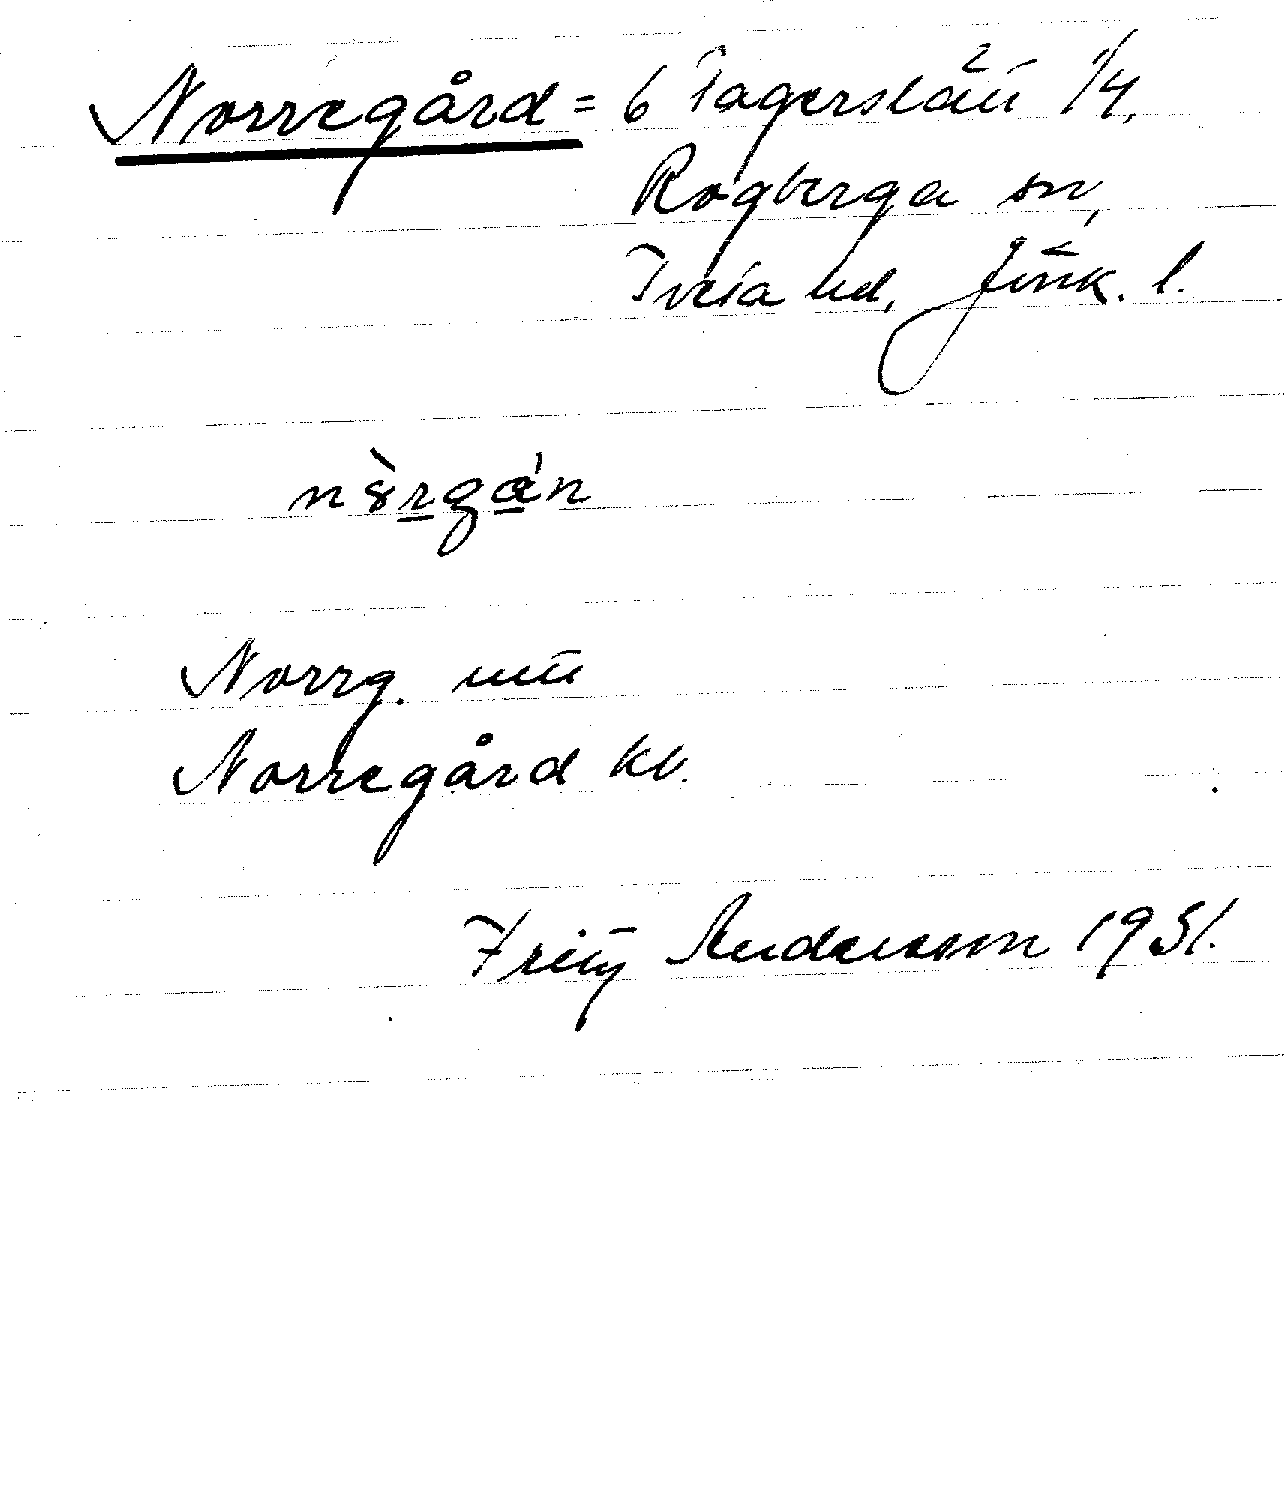 Norregård = 6 Tagerslätt 1/4,
Rogberga sn,
Tveta hd, Jönk. l.
Norrg. utt
Norregård kv.
Fritz Andersson 1931.